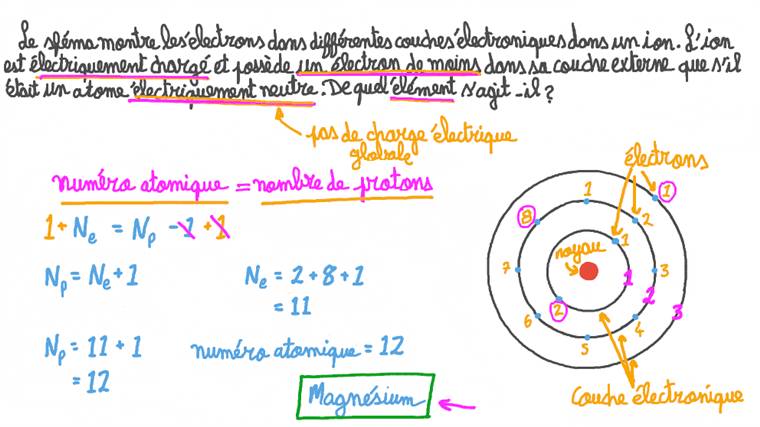 Le spéma montre les électrons dans différentes couches électroniques dans un ion. L'ion
est électriquement chargé et possède un électron de moins dans sa couche externe que s'il
était un atome électriquement neutre. De quel élément s'agit-il ?
pas de charge électrique
globale
numéro atomique = nombre de protons
1 + Ne = Np - 1 + 1
Np = Ne + 1
Ne = 2 + 8 + 1
= 11
Np = 11 + 1
= 12
numéro atomique = 12
Magnésium
électrons
1
1
8
2
noyau
1
7
3
1
2
3
2
6
4
5
Couche électronique